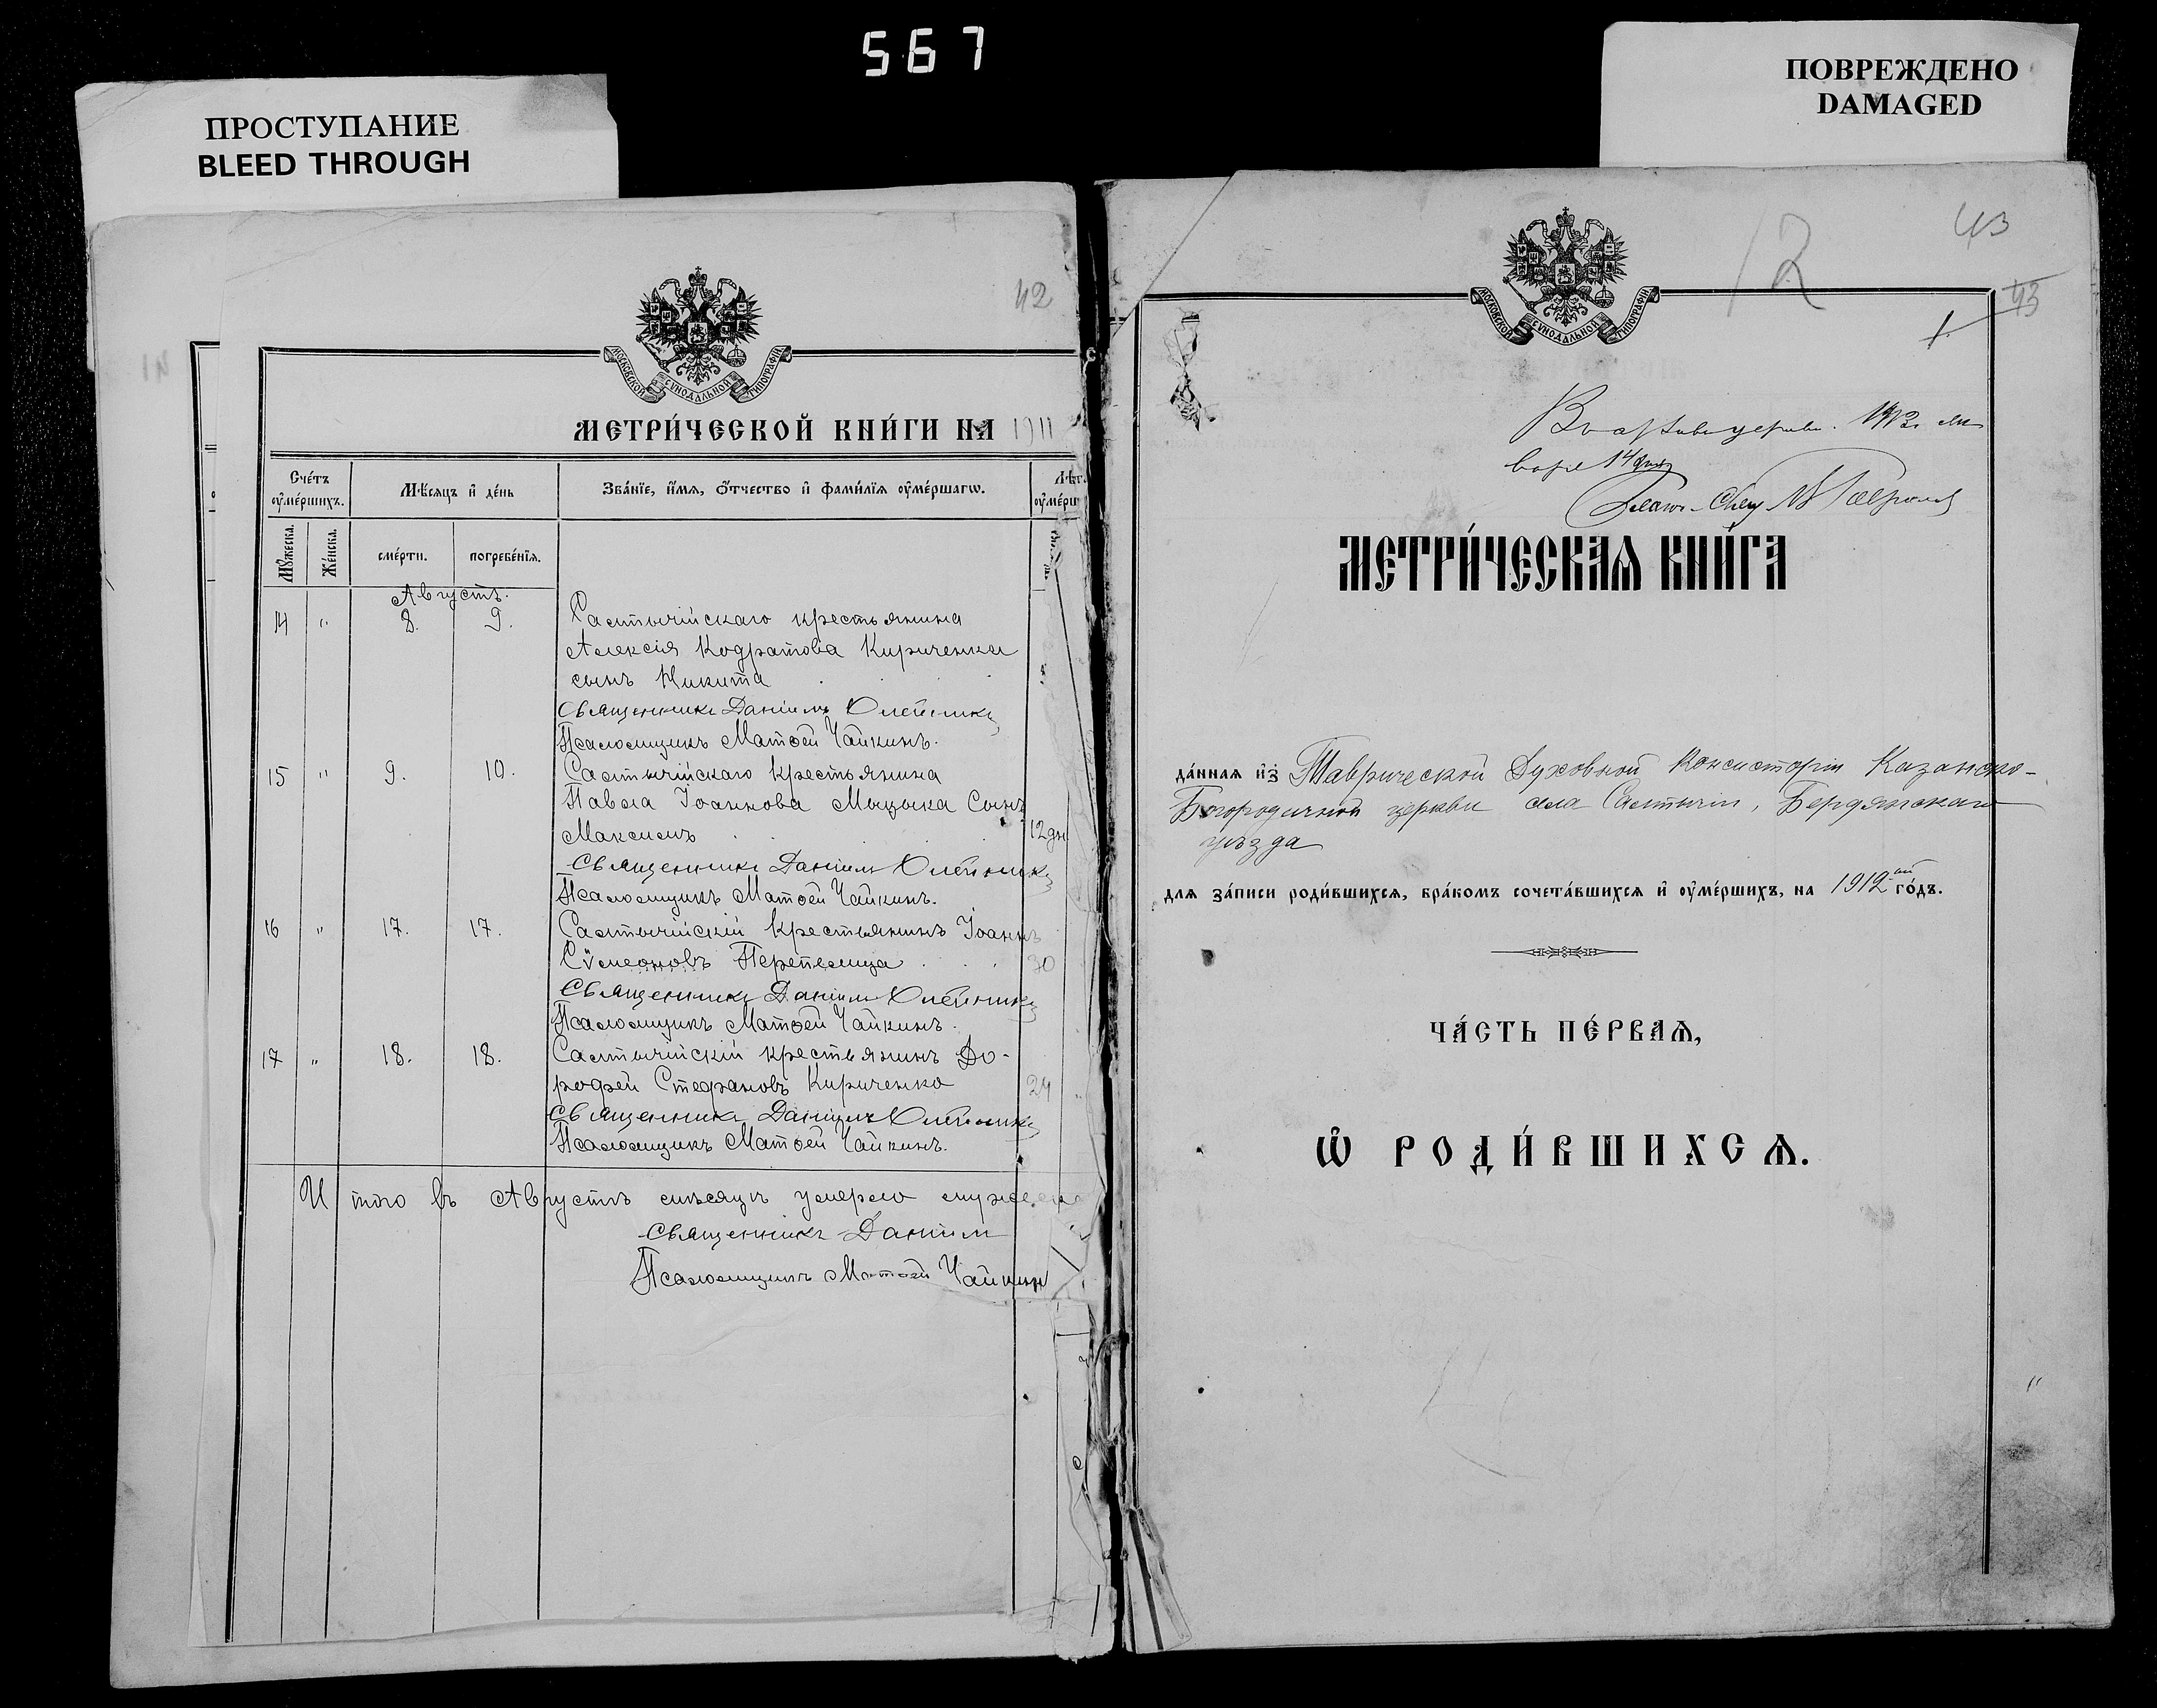 567
ПРОСТУПАНИЕ
BLEED THROUGH
ПОВРЕЖДЕНО
DAMAGED
42
МОСКОВСКОЙ СѴНОДАЛЬНОЙ ТИПОГРАФІИ
МЕТРИ́ЧЕСКОЙ КНИ́ГИ НА 1911
Сче́тъ оу҆ме́ршихъ.
Мѣ́сяцъ и҆ де́нь
Зва́нїе, и҆́мя, ѻ҆́тчество и҆ фами́лїя оу҆ме́ршагѡ.
Лѣт
оу҆ме́рш
Мꙋ́жеска.
Же́нска.
сме́рти.
погребе́нїя.
Августъ.
14 " 8. 9. Салтычійскаго крестьянина
Алексія Кодратова Кириченка
сынъ Никита
Священникъ Даніилъ Олейникъ
Псаломщикъ Матѳей Чайкинъ.
15 " 9. 10. Салтычійскаго крестьянина
Павла Іоаннова Мыцыка Сынъ
Максимъ 12 дн
Священникъ Даніилъ Олейникъ
Псаломщикъ Матѳей Чайкинъ.
16 " 17. 17. Салтычійскій крестьянинъ Іоаннъ
Сѵмеоновъ Перепелица 30
Священникъ Даніилъ Олейникъ
Псаломщикъ Матѳей Чайкинъ.
17 " 18. 18. Салтычійскій крестьянинъ До-
рофей Стефановъ Кириченко 24
Священникъ Даніилъ Олейникъ
Псаломщикъ Матѳей Чайкинъ.
И того въ Августѣ мѣсяцѣ умерло мужеска
Священникъ Даніилъ
Псаломщикъ Матѳей Чайкин
12
43
43
1.
МОСКОВСКОЙ СѴНОДАЛЬНОЙ ТИПОГРАФІИ
1913 ян
варя 14 дня
МЕТРИ́ЧЕСКАЯ КНИ́ГА
да́нная и҆з̾ Таврической Духовной Консисторіи Казанско-
Богородичной церкви села Салтычіи, Бердянскаго
уѣзда
для за́писи роди́вшихся, бра́комъ сочета́вшихся и҆ оу҆ме́ршихъ, на 1912-ый го́дъ.
ЧА́СТЬ ПЕ́РВАЯ,
Ѡ҆ РОДИ́ВШИХСЯ.